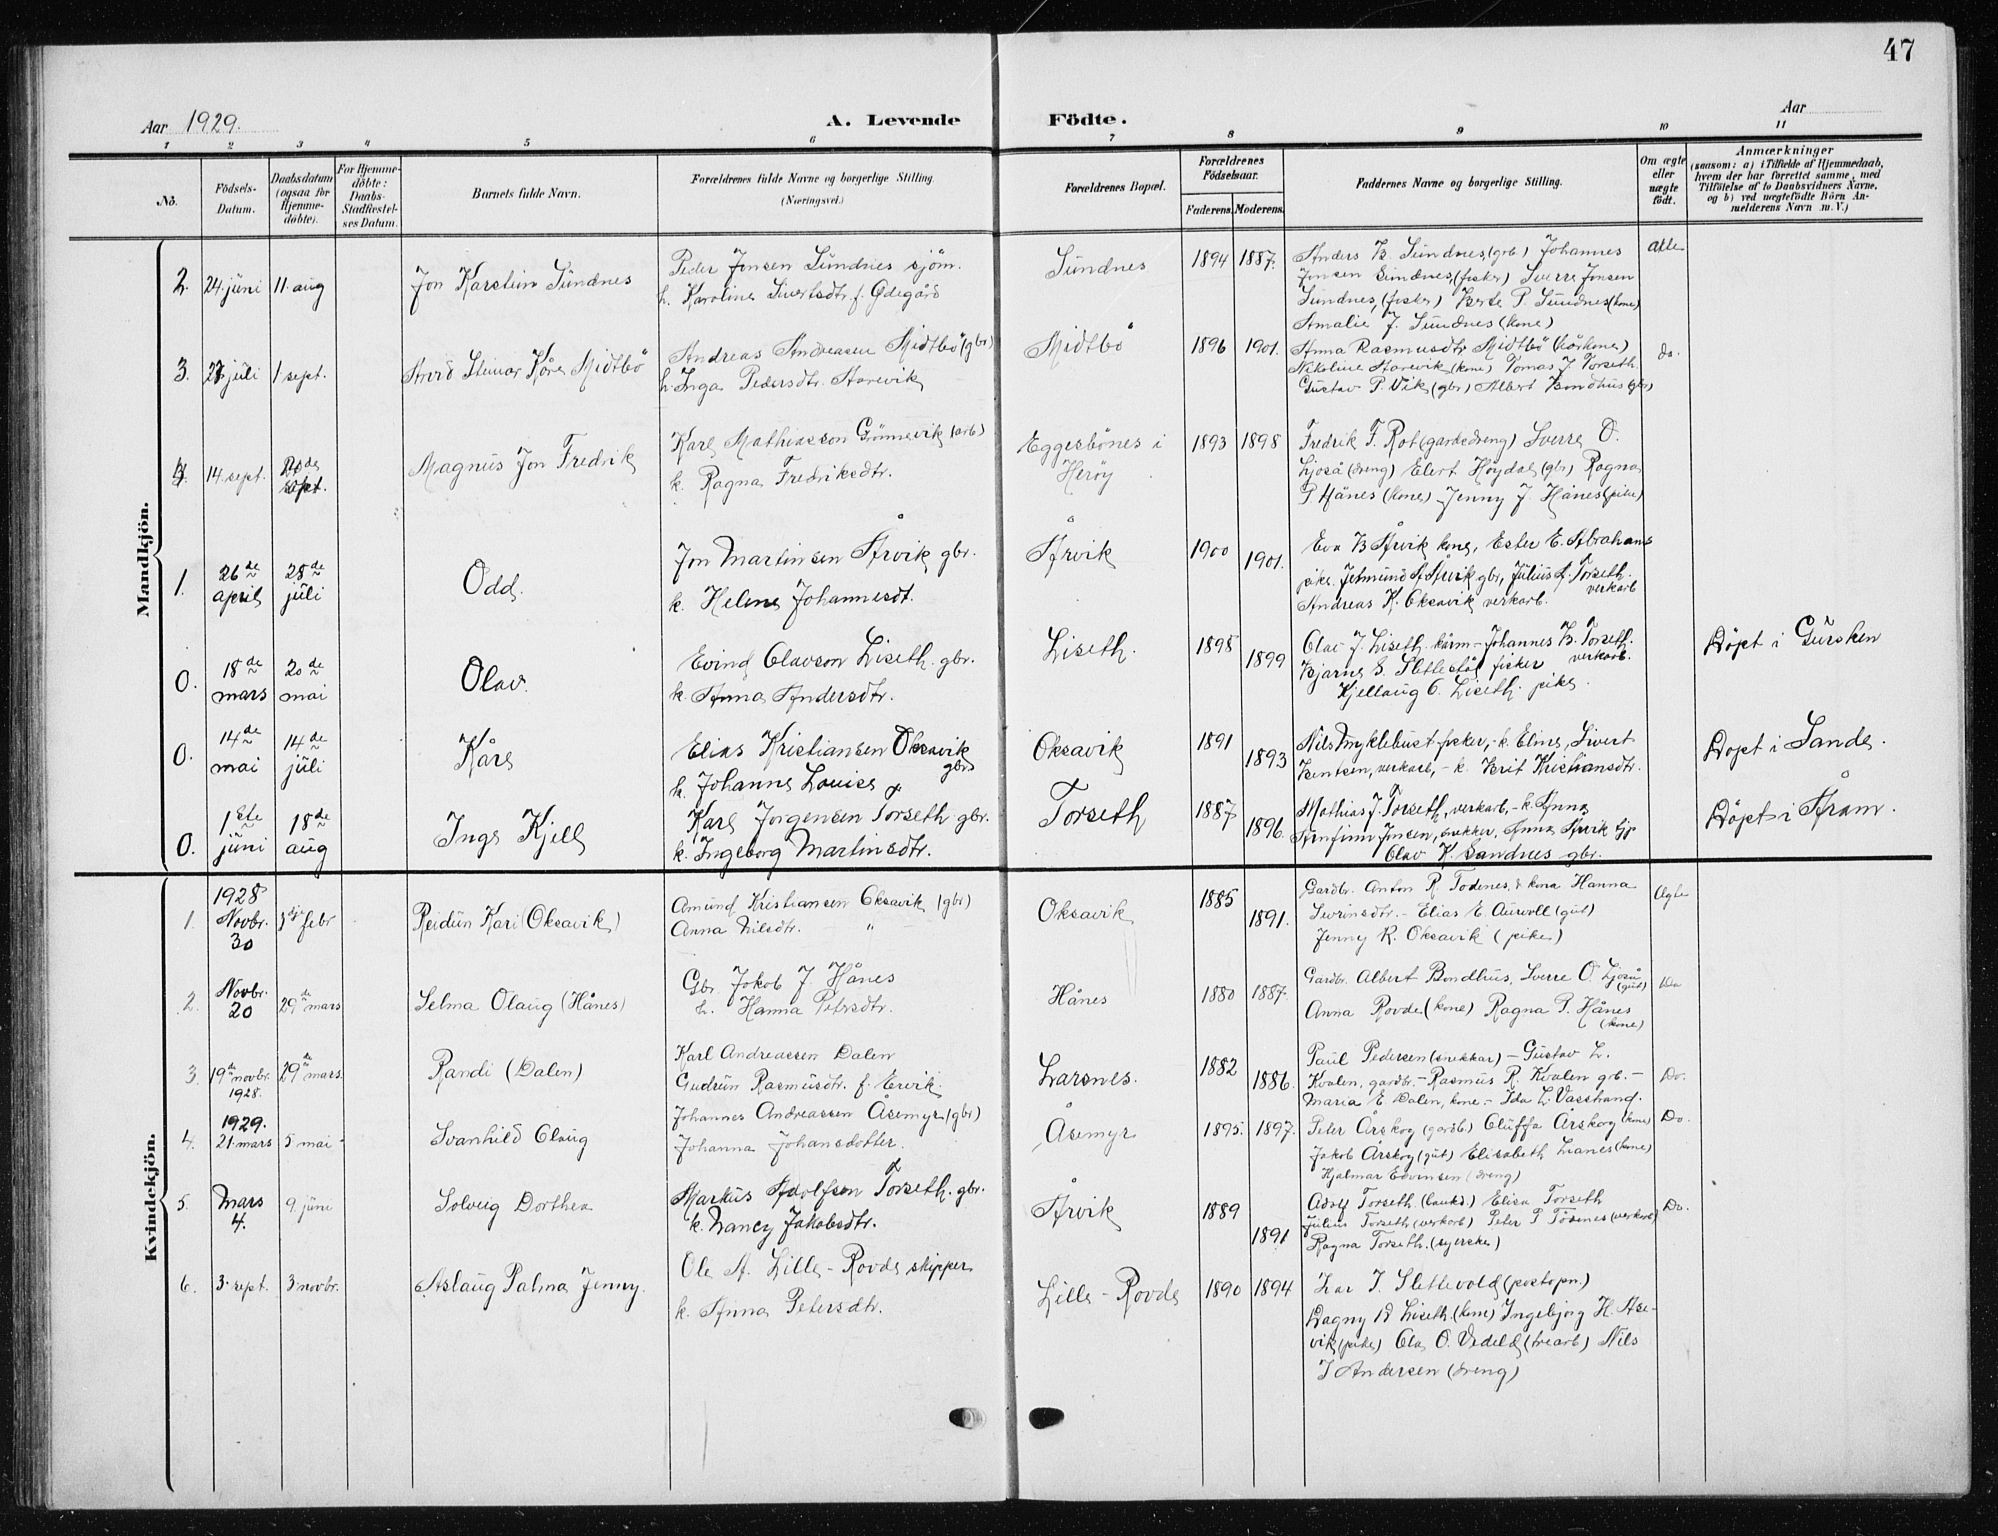 47
Aar 1929.
A. Levende Födte.
Aar
1 2 3 4 5 6 7 8 9 10 11
No.
Födsels-Datum.
Daabsdatum (ogsaa for Hjemmedöbte).
For Hjemmedöbte: Daabs-Stadfæstelses Datum.
Barnets fulde Navn.
Forældrenes fulde Navne og borgerlige Stilling. (Næringsvei.)
Forældrenes Bopæl.
Forældrenes Födselsaar.
Faderens. Moderens.
Faddernes Navne og borgerlige Stilling.
Om ægte eller uægte födt.
Anmærkninger
(saasom: a) i Tilfælde af Hjemmedaab, hvem der har forrettet samme, med Tilföielse af to Daabsvidners Navne, og b) ved uægtefödte Börn Anmelderens Navn m. V.)
Mandkjön.
2. 24. juni 11. aug Jon Karstein Sundnes
Peder Jonsen Sundnes sjöm.
h. Karoline Sivertsdtr f. Ødegård
Sundnes 1894 1887.
Anders B. Sundnes (grb) Johannes
Jonsen Sundnes, (fisker) Sverre Jonsen
Sundnes, (fisker) Berte P. Sundnes (kone)
Amalie J. Sundnes (kone)
3. juli 1 sept. Arvid Steinar Kåre Midtbö
Andreas Andreasen Midtbö (gbr)
h. Inga Pedersdtr. Storevik
Midtbö 1896 1901.
Anna Rasmusdtr Midtbö
Nikoline Storevik (kone) Tomas J. Torseth
Gustav P. Vik (gbr) Albert Bondhus (gbr)
do.
4. 14. sept. Magnus Jon Fredrik
Karl Mathiasson Grönnevik (arb)
k. Ragna Fredriksdtr.
Eggesbönes i
Heröy
1893 1898
Fredrik F. Rot (gardsdreng) Sverre O.
Ljoså (dreng) Elert Höydal (gbr) Ragna
P Hånes (kone) Jenny J. Hånes (pike)
1. 26de april 28de juli Odd.
Jon Martinsen Årvik, gbr.
k. Helene Johannesdt.
Årvik 1900 1901.
Eva B Årvik kone, Ester E. Abrahams
pike. Jetmund A Årvik gbr, Julius A. Torseth. verkarb
Andreas K. Oksavik verkarb.
0. 18de mars 20de mai Olav.
Eivind Olavson Liseth. gbr.
k. Anna Andersdtr.
Liseth. 1895 1899
Olav J. Liseth. kårm - Johannes B. Torseth. verkarb.
Bjarne S. Slettestöl fisker
Kjellaug O. Liseth. pike.
Döpt i Gursken
0. 14de mai 14de juli Kåre
Elias Kristiansen Oksavik gbr
k. Johanne Louise
Oksavik 1891 1893
Nils Myklebust fisker, - k. Eline, Sivert
Bentsen, verkarb, - k. Brit Kristiansdtr.
Döpt i Sande.
0. 1ste juni 18de aug Inge Kjell
Karl Jorgensen Torseth gbr.
k. Ingeborg Martinsdtr.
Torseth 1887 1896.
Mathias J. Torseth, verkarb, - k. Anna
Arnfinn Jonsen, snekker, Anna Årvik
Olav K. Sandnes gbr.
Döpt i Åram.
Kvindekjön.
1. 1928 Novbr. 30 febr Reidun Kari (Oksavik)
Amund Kristiansen Oksavik (gbr)
Anna Nilsdtr. - " -
Oksavik 1885 1891.
Gardbr. Anton R Todenes, & kona Hanna
Sivrinsdtr. - Elias E. Aurvoll (gut)
Jenny K. Oksavik (pike)
Ægte
2. Novbr. 20 29de mars Selma Olaug (Hånes)
Gbr. Jokob J. Hånes
h. Hanna Petrsdtr.
Hånes 1880 1887.
Gardbr. Albert Bondhus, Sverre O. Ljoså (gut)
Anna Rovde (kone) Ragna P. Hånes (kone)
Do
3. 19de novbr. 1928. 29de mars. Randi (Dalen)
Karl Andreassen Dalen
Gudrun Rasmusdtr. f. Ervik.
Larsnes. 1882 1886.
Paul Pedersen (snekkar) - Gustav L.
Kvalen, gardbr. - Rasmus R. Kvalen grb. -
Maria E Dalen, kone. - Ida L. Vasstrand.
Do.
4. 1929. 21. mars 5 mai Svanhild Olaug
Johannes Andreassen Åsemyr (gbr)
Johanna Johansdotter.
Åsemyr 1895. 1897.
Peter Årskog (gardb) Oluffa Årskog (kone)
Jakob Årskog (gut) Elisabeth Lianes (kone)
Hjalmar Edvinsen (dreng)
Do.
5. Mars 4. 9. juni Solveig Dorthea
Markus Adolfsen Torseth. gbr.
k. Nancy Jakobsdtr.
Årvik 1889 1891
Adolf Torseth. Elisa Torseth
Julius Torseth (verkarb) Peter P Tödenes (verkarb)
Ragna Torseth. (syerske)
Do.
6. 3. sept. 3 novbr. Aslaug Palma Jenny.
Ole A. Lille-Rovde skipper
k. Anna Petersdtr.
Lille-Rovde 1890 1894
Lar I. Slettevold (postopn.)
Dagny D Liseth. (kone) Ingebjorg H. Ase-
vik (pike) Ola O. Vedeld (trearb) Nils
I Andersen (dreng)